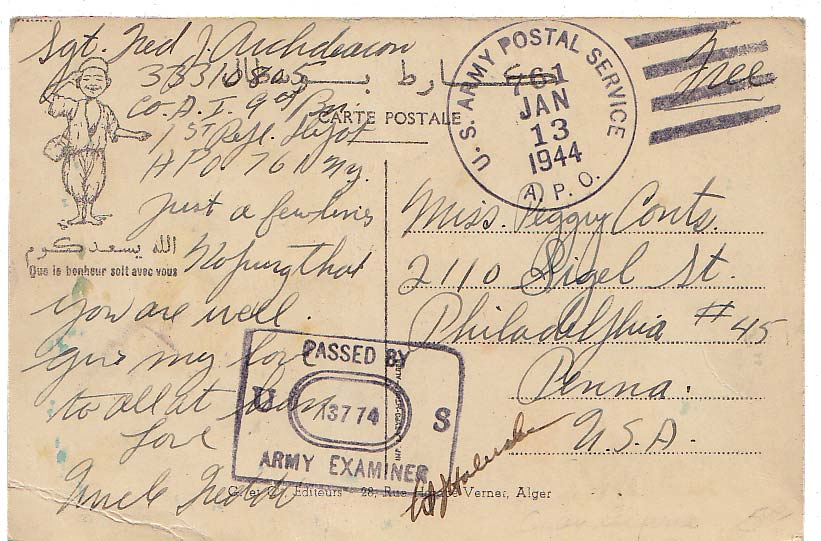 Sgt. Fred J. Archdeacon
33310805
Co. A. I. 9th Bn.
1st Repl. Depot
APO. 761 N.Y.
كارط بوسطال
CARTE POSTALE
U.S. ARMY POSTAL SERVICE
761
JAN
13
1944
A.P.O.
Free
الله يسعدكوم
Que le bonheur soit avec vous
Just a few lines
Hoping that
you are well.
give my love
to all at home
Love
Uncle Fred
Miss. Peggy Conts.
2110 Sigel St.
Philadelphia #45
Penna.
U.S.A.
PASSED BY
U 13774 S
ARMY EXAMINER
Editeurs - 28, Rue Verner, Alger